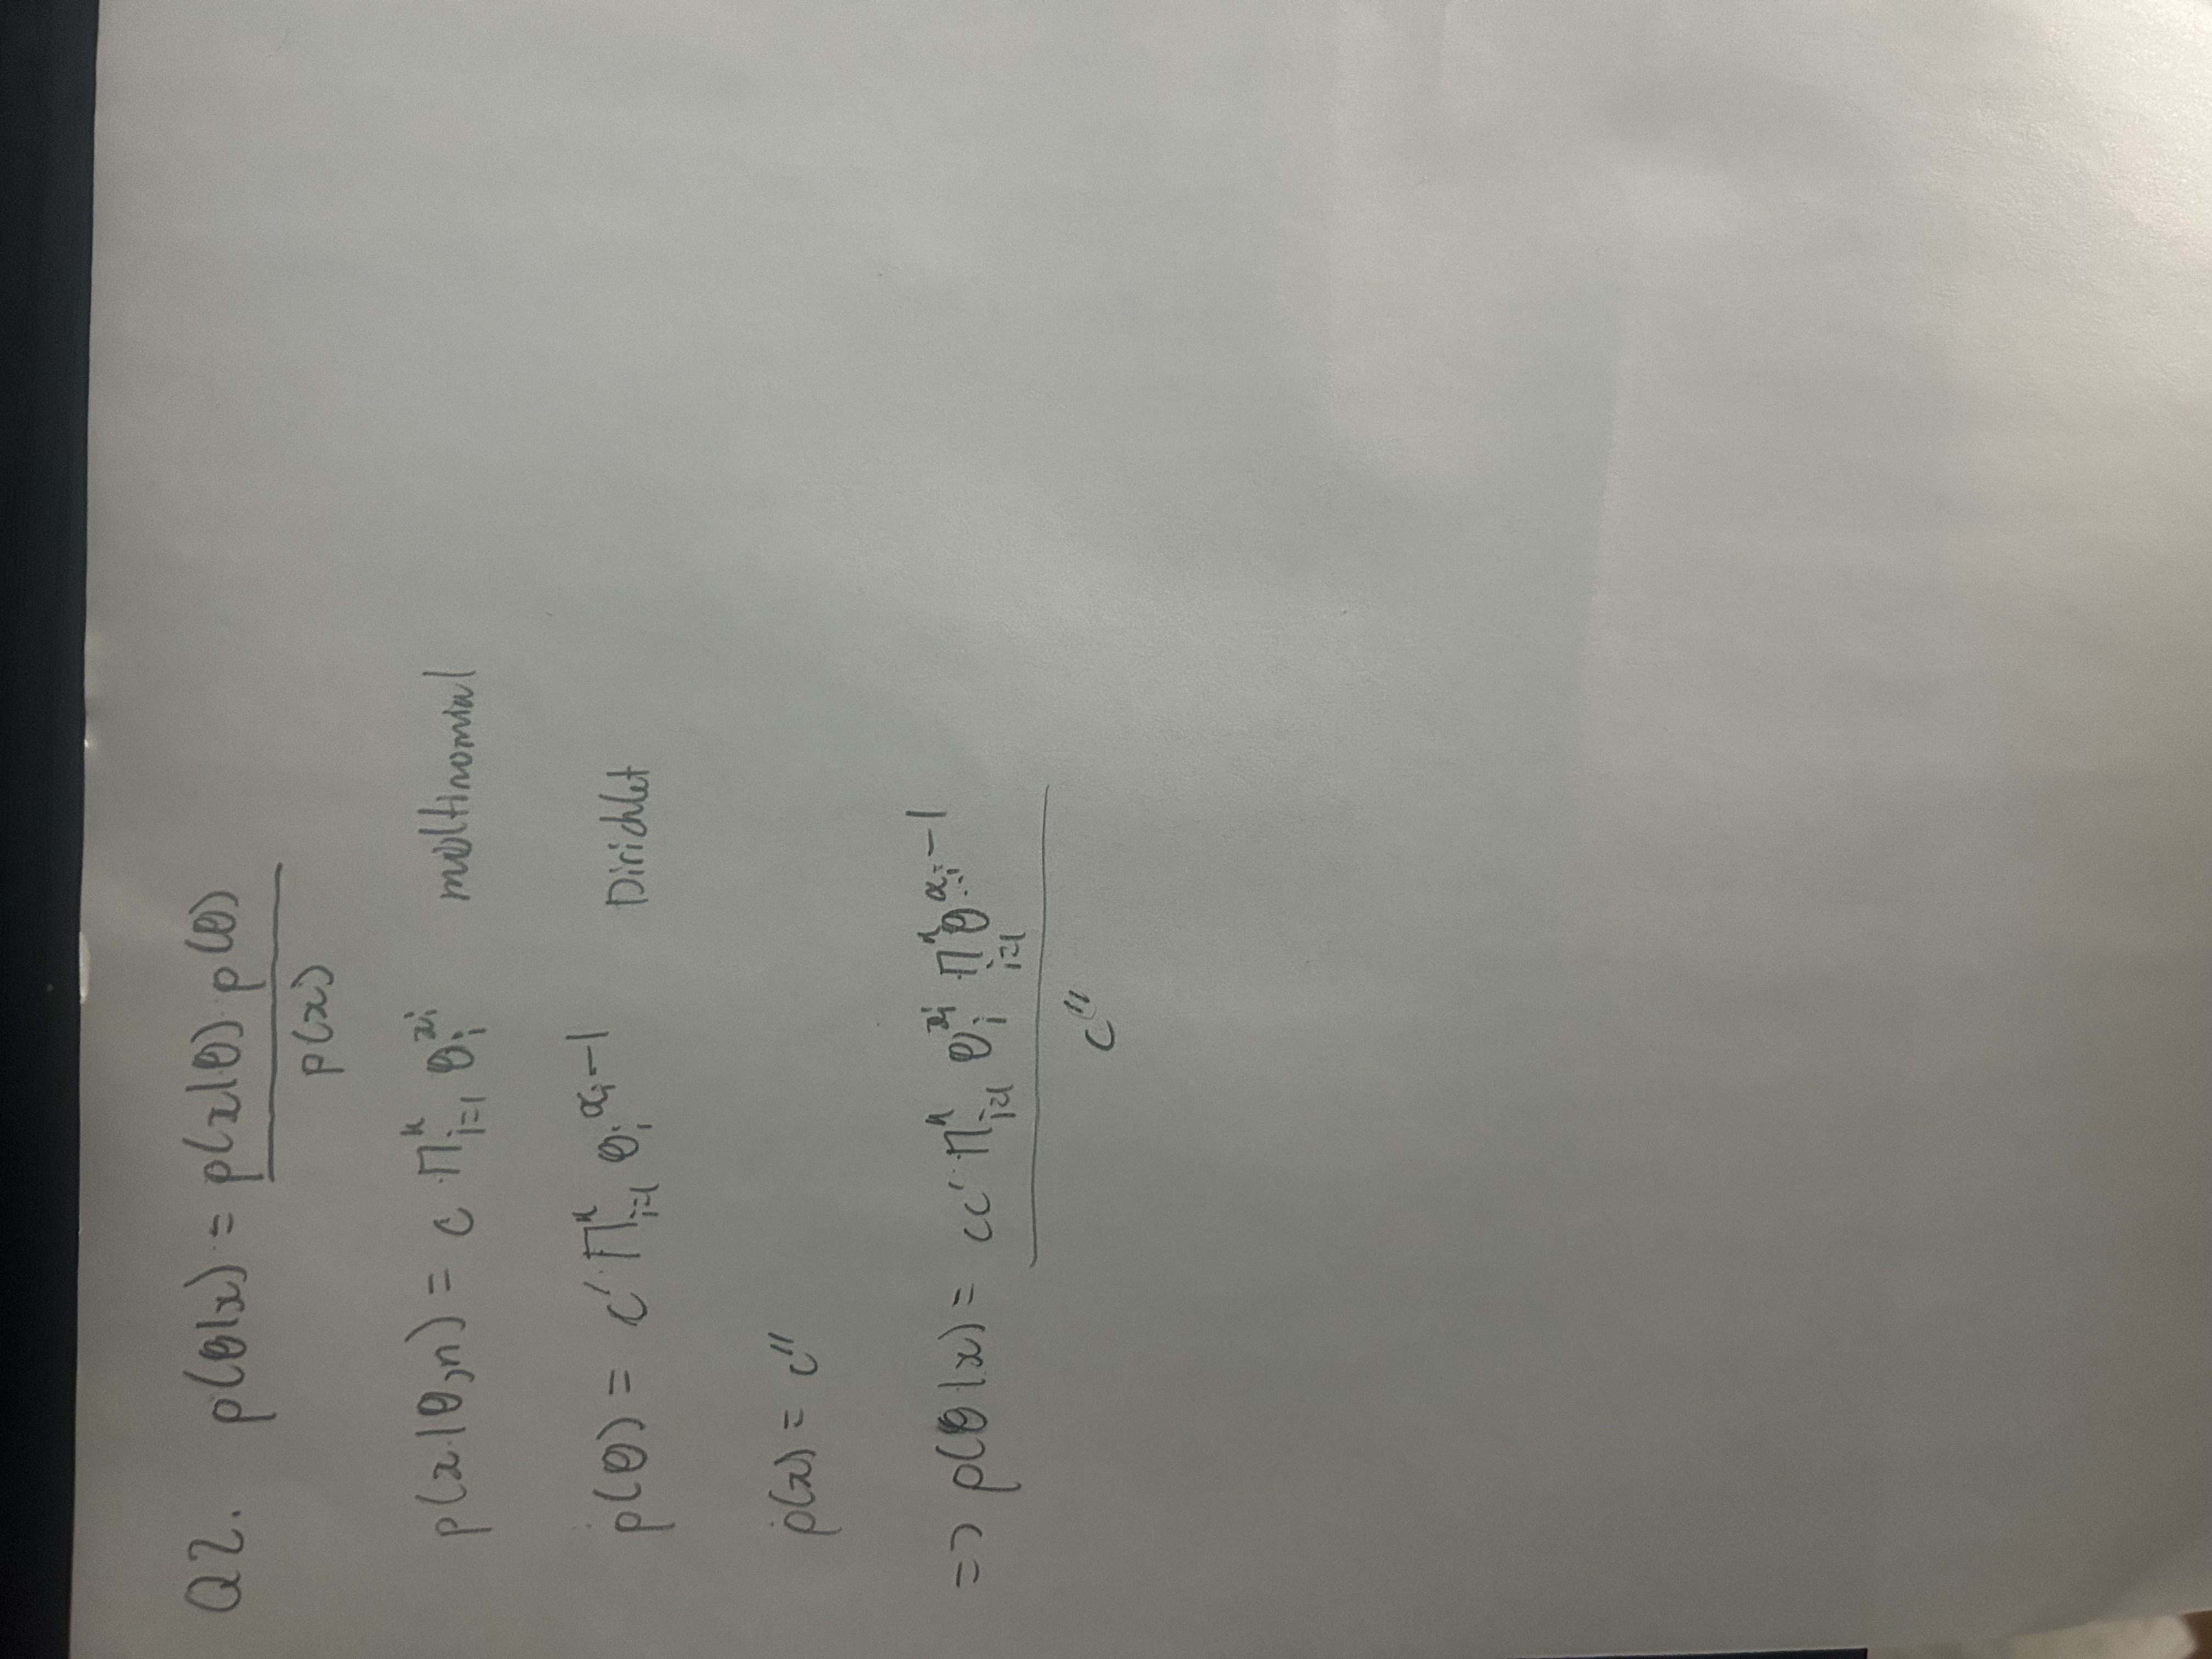 Q2. p(θ|x) = p(x|θ) p(θ)
p(x)
p(x|θ,n) = c ∏ᵏᵢ₌₁ θᵢ^xᵢ multinomial
p(θ) = c′ ∏ᵏᵢ₌₁ θᵢ^αᵢ-1 Dirichlet
p(x) = c″
=> p(θ|x) = cc′ ∏ᵏᵢ₌₁ θᵢ^xᵢ ∏ᵏᵢ₌₁ θᵢ^αᵢ-1
c″